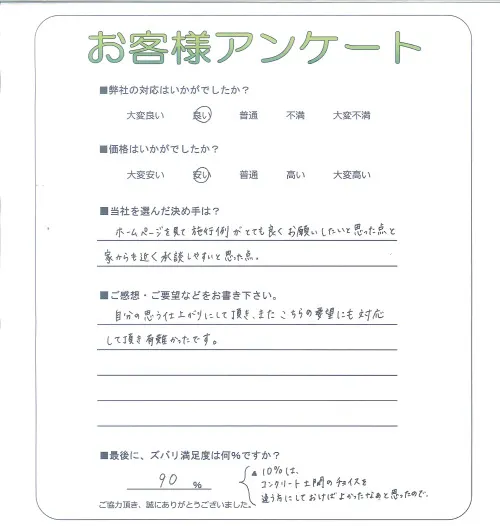 お客様アンケート
■弊社の対応はいかがでしたか？
大変良い 良い 普通 不満 大変不満
■価格はいかがでしたか？
大変安い 安い 普通 高い 大変高い
■当社を選んだ決め手は？
ホームページを見て施行例がとても良くお願いしたいと思った点と
家からも近く永談しやすいと思った点。
■ご感想・ご要望などをお書き下さい。
自分の思う仕上がりにして頂き、またこちらの要望にも対応
して頂き有難かったです。
■最後に、ズバリ満足度は何%ですか？
90 %
▲10%は、
コンクリート土間のチョイスを
違う方にしておけばよかったなぁと思ったので。
ご協力頂き、誠にありがとうございました。